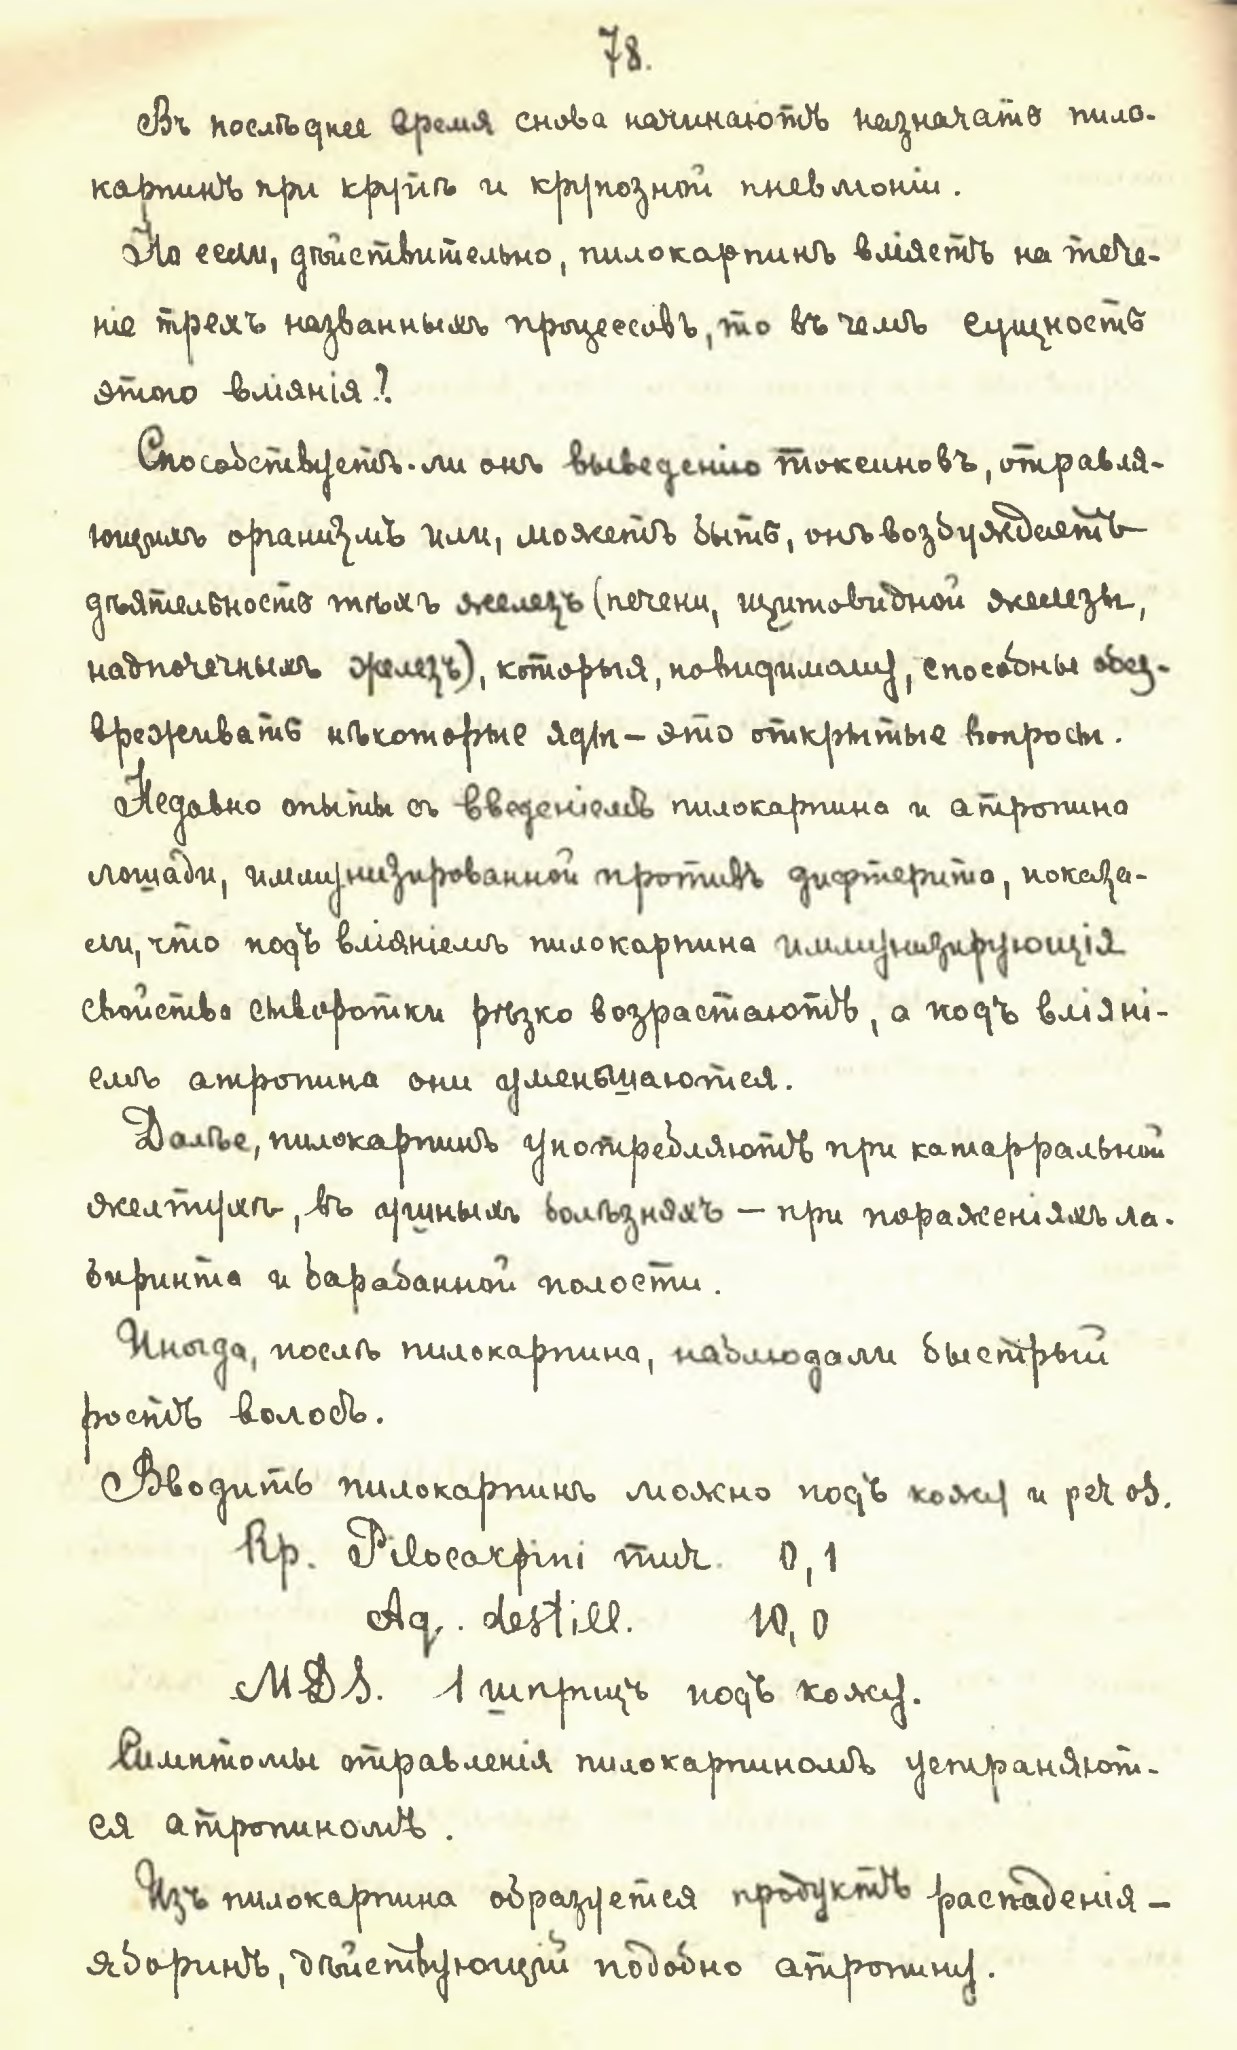 78.
Въ послѣднее время снова начинаютъ назначать пило-
карпинъ при крупѣ и крупозной пневмоніи.
Но если, дѣйствительно, пилокарпинъ вліяетъ на тече-
ніе трехъ названныхъ процессовъ, то въ чемъ сущность
этого вліянія?
Способствуетъ-ли онъ выведенію токсиновъ, отравля-
ющихъ организмъ или, можетъ быть, онъ возбуждаетъ
дѣятельность тѣхъ железъ (печени, щитовидной железы,
надпочечныхъ железъ), которыя, повидимому, способны обез-
вреживать нѣкоторые яды – это открытые вопросы.
Недавно опыты съ введеніемъ пилокарпина и атропина
лошади, иммунизированной противъ дифтерита, показа-
ли, что подъ вліяніемъ пилокарпина иммунизирующія
свойства сыворотки рѣзко возрастаютъ, а подъ вліяні-
емъ атропина они уменьшаются.
Далѣе, пилокарпинъ употребляютъ при катарральной
желтухѣ, въ ушныхъ болѣзняхъ – при пораженіяхъ ла-
биринта и барабанной полости.
Иногда, послѣ пилокарпина, наблюдали быстрый
ростъ волосъ.
Вводить пилокарпинъ можно подъ кожу и per os.
Rp. Pilocarpini mur. 0,1
Aq. destill. 10,0
MDS. 1 шприцъ подъ кожу.
Симптомы отравленія пилокарпиномъ устраняют-
ся атропиномъ.
Изъ пилокарпина образуется продуктъ распаденія –
яборинъ, дѣйствующій подобно атропину.